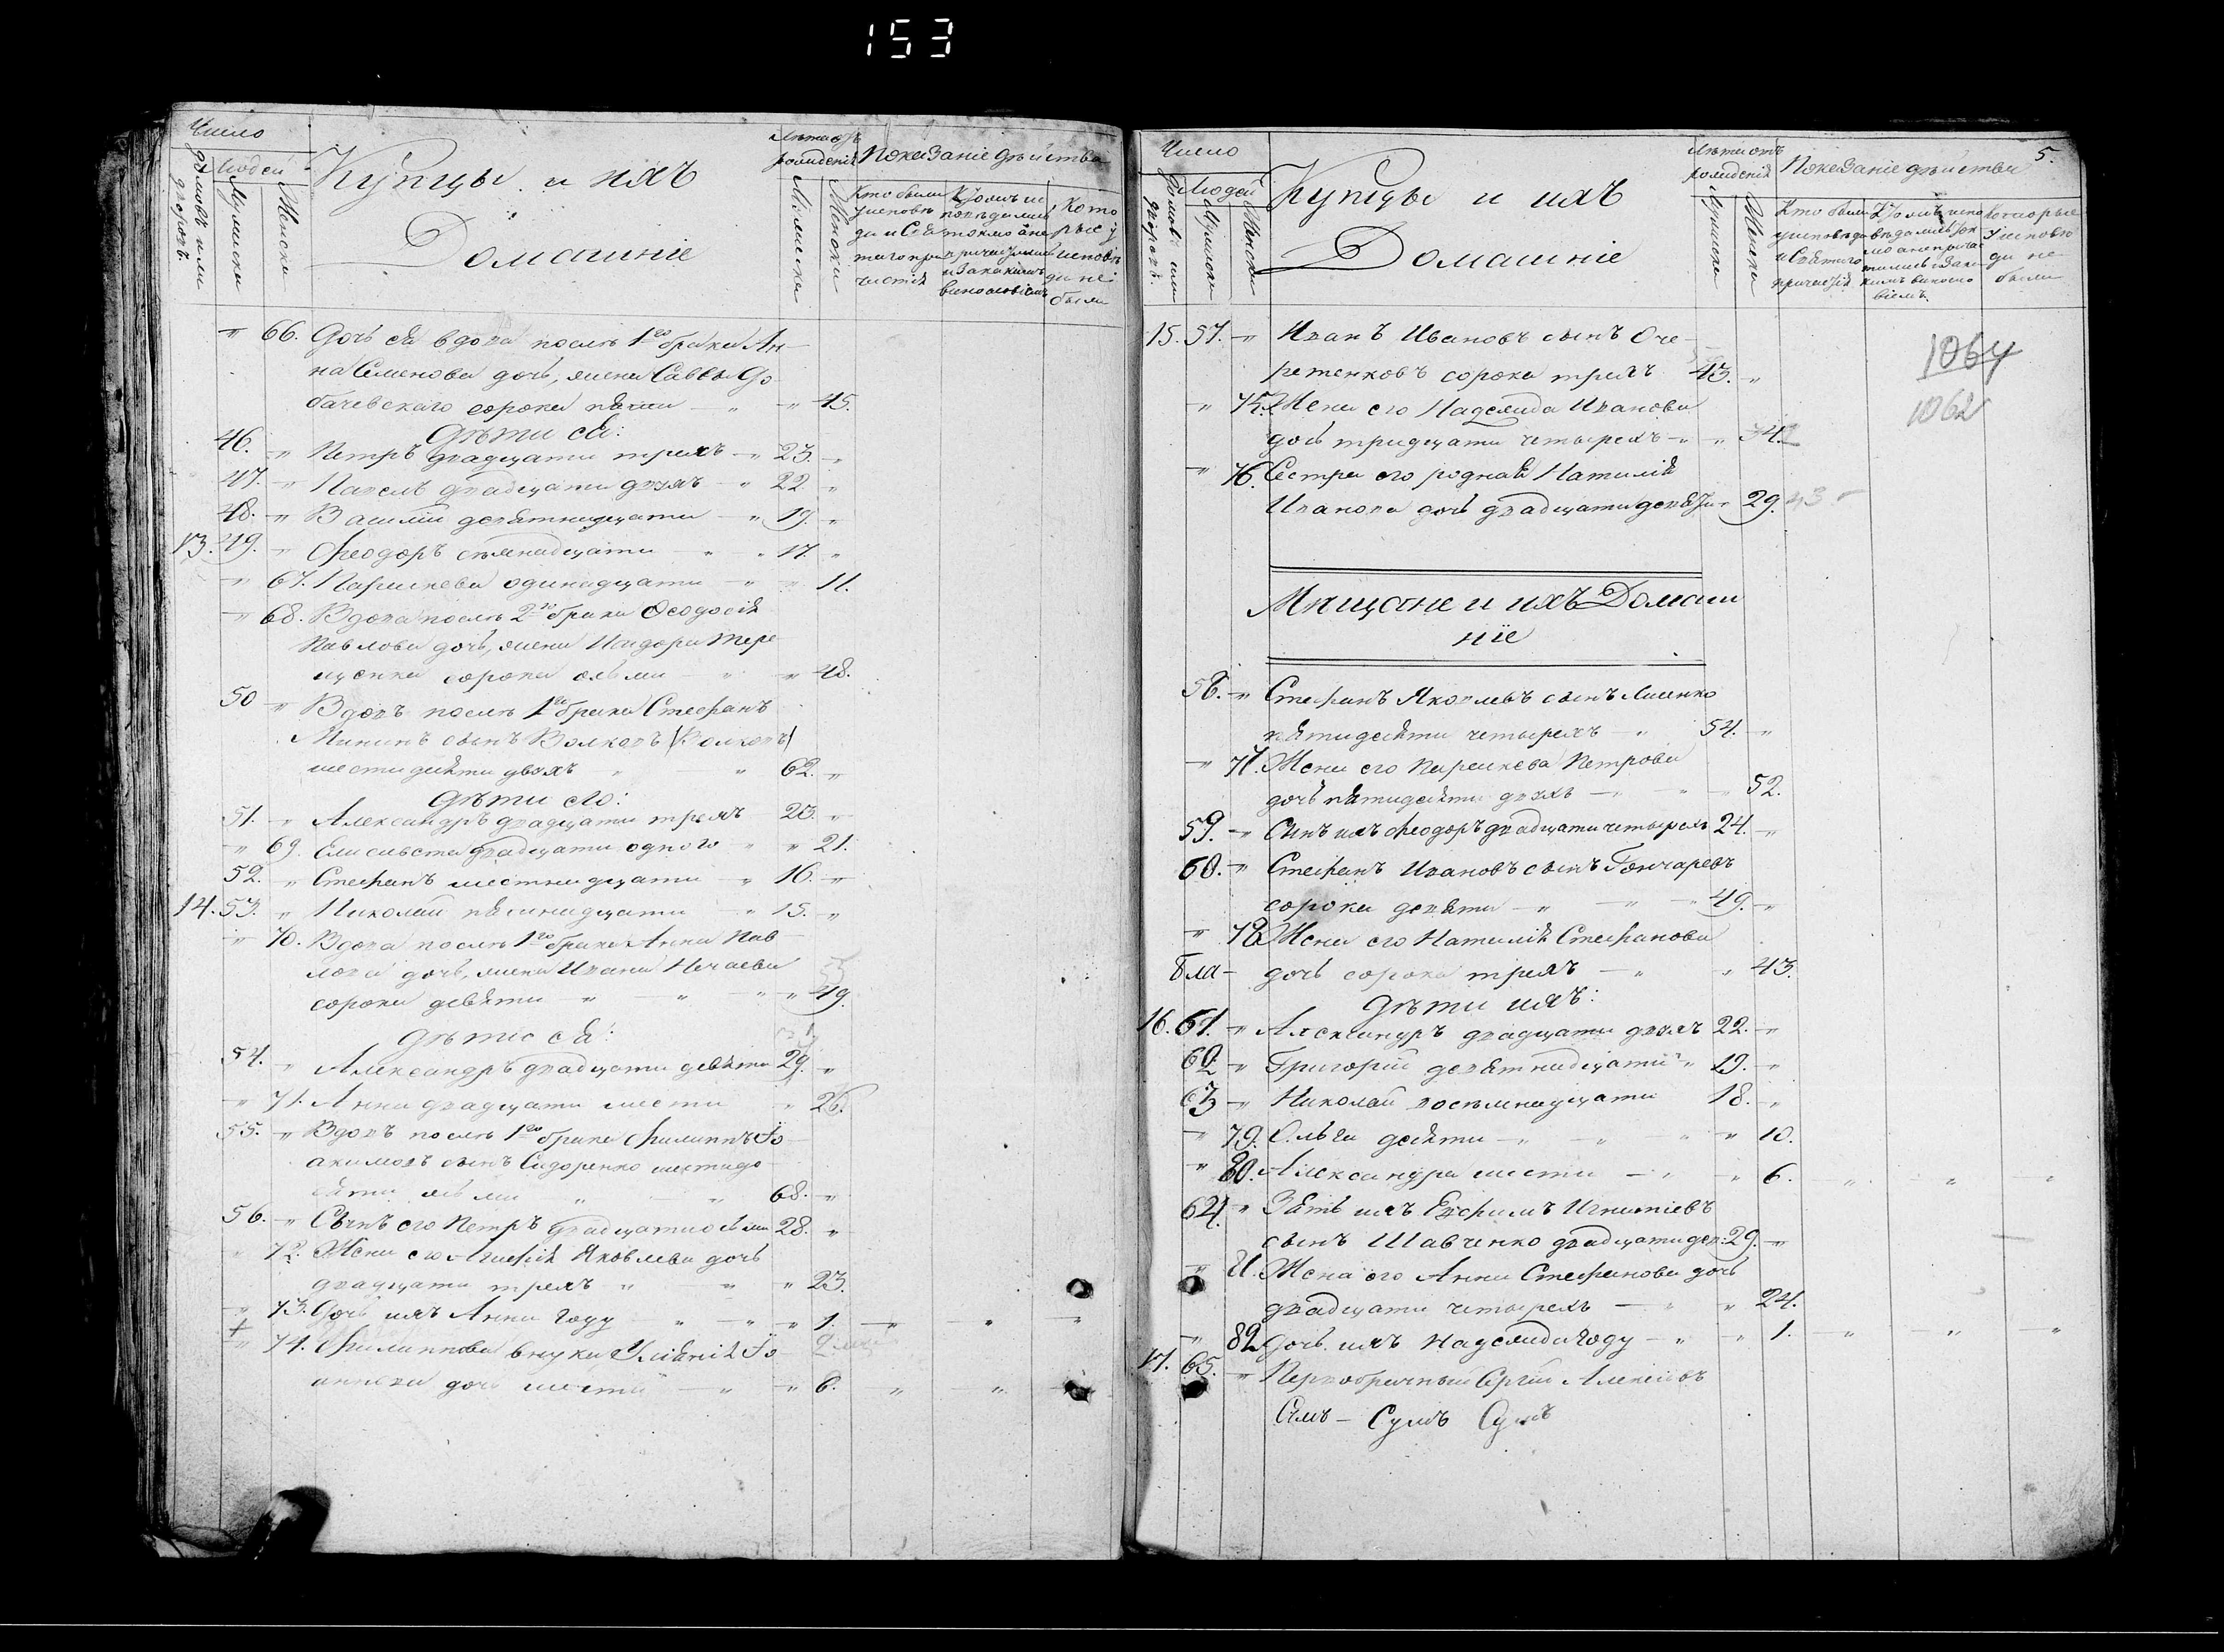 153
Число
Людей
домовъ или дворовъ.
Мужеска
Женска
Купцы и ихъ
Домашніе
Лѣта отъ рожденія
Мужеска
Женска
Показаніе дѣйства
Кто были у исповѣди и Святаго причастія
Которые у исповѣди не были
" 66. Дочь ея вдова послѣ 1го брака Ан-
на Семенова дочь, жена Саввы До-
бачевскаго сорока пяти " " 45.
Дѣти ея:
46. " Петръ двадцати трехъ " 23. "
47. " Павелъ двадцати двухъ " 22 "
48. " Василій девятнадцати " 19. "
13. 49. " Ѳеодоръ семнадцати " " 17. "
" 67. Параскева одинадцати " " 11.
" 68. Вдова послѣ 2го брака Ѳеодосія
Павлова дочь, жена Исидора Тере
щенка сорока осьми " " 48.
50 " Вдовъ послѣ 1го брака Стефанъ
Мининъ сынъ Волковъ (Волковъ)
шестидесяти двухъ " " 62. "
Дѣти его:
51. " Александръ двадцати трехъ 23. "
" 69. Елисавета двадцати одного " " 21.
52. " Стефанъ шестнадцати " 16. "
14. 53. " Николай пятнадцати " 15. "
" 70. Вдова послѣ 1го брака Анна Пав-
лова дочь, жена Ивана Нечаева
сорока девяти " " " " 49.
Дѣти ея:
54. " Александръ двадцати девяти 29. "
" 71. Анна двадцати шести " 26.
55. " Вдовъ послѣ 1го брака Филиппъ Іо-
акимовъ сынъ Сидоренко шестиде-
сяти осьми " " 68. "
56. " Сынъ его Петръ двадцати осьми 28. "
" 72. Жена его Агафія Яковлева дочь
двадцати трехъ " " " 23.
" 73. Дочь ихъ Анна году " " " 1. " " "
" 74. Филиппова внука Іо-
аннова дочь шести " " 6. " " "
5.
Число
Людей
домовъ или дворовъ.
Мужеска
Женска
Купцы и ихъ
Домашніе
Лѣта отъ рожденія
Мужеска
Женска
Показаніе дѣйства
Кто были у исповѣди и Святаго причастія
Которые у исповѣди не были
15. 57. " Иванъ Ивановъ сынъ Оче-
ретенковъ сорока трехъ 43. "
" 75. Жена его Надежда Иванова
дочь тридцати четырехъ " " 34.
" 76. Сестра его родная Наталія
Иванова дочь двадцати девяти " 29. 43
1064
1062
Мѣщане и ихъ Домаш
ніе
58. " Стефанъ Яковлевъ сынъ Лименко
пятидесяти четырехъ " 54. "
" 77. Жена его Параскева Петрова
дочь пятидесяти двухъ " " " 52.
59. " Сынъ ихъ Ѳеодоръ двадцати четырехъ 24. "
60. " Стефанъ Ивановъ сынъ Гончаревъ
сорока девяти " " " 49. "
" 78 Жена его Наталія Стефанова
дочь сорока трехъ " " 43.
Дѣти ихъ:
16. 61. " Александръ двадцати двухъ 22. "
62. " Григорій девятнадцати " 19. "
63 " Николай восемнадцати 18. "
" 79. Ольга десяти " " " " 10.
" 80. Александра шести " " 6. " " "
64. " Зять ихъ Евфимъ Игнатіевъ
сынъ Шавченко двадцати дев: 29. "
" 81. Жена его Анна Стефанова дочь
двадцати четырехъ " " 24.
" 82 Дочь ихъ Надежда году " " 1. " " "
17. 65. " Первобрачный Сергій Алексіевъ
Сумъ